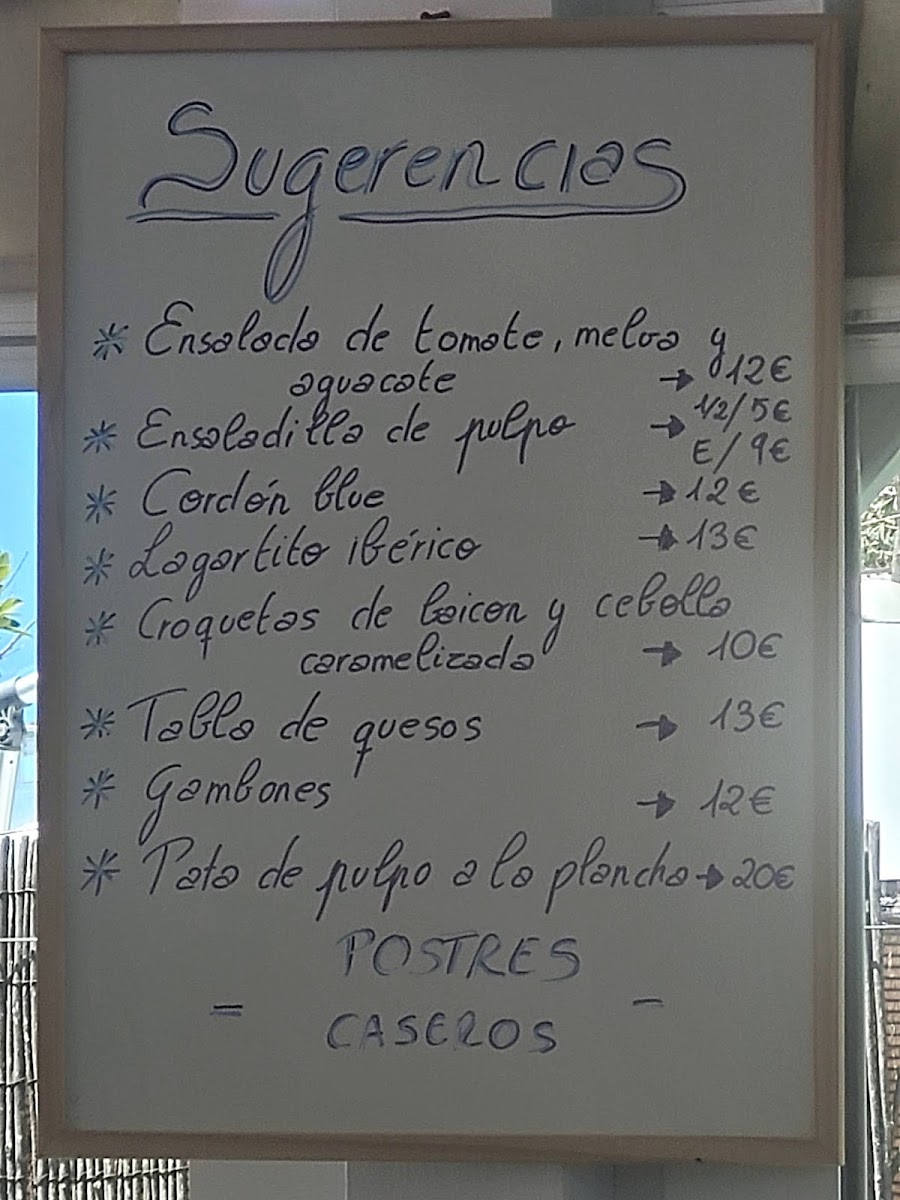 Sugerencias
* Ensalada de tomate, melva y
aguacate → 12€
* Ensaladilla de pulpo → 1/2/5€
E/9€
* Cordón blue → 12€
* Lagartito ibérico → 13€
* Croquetas de baicon y cebolla
caramelizada → 10€
* Tabla de quesos → 13€
* Gambones → 12€
* Pata de pulpo a la plancha → 20€
POSTRES
CASEROS